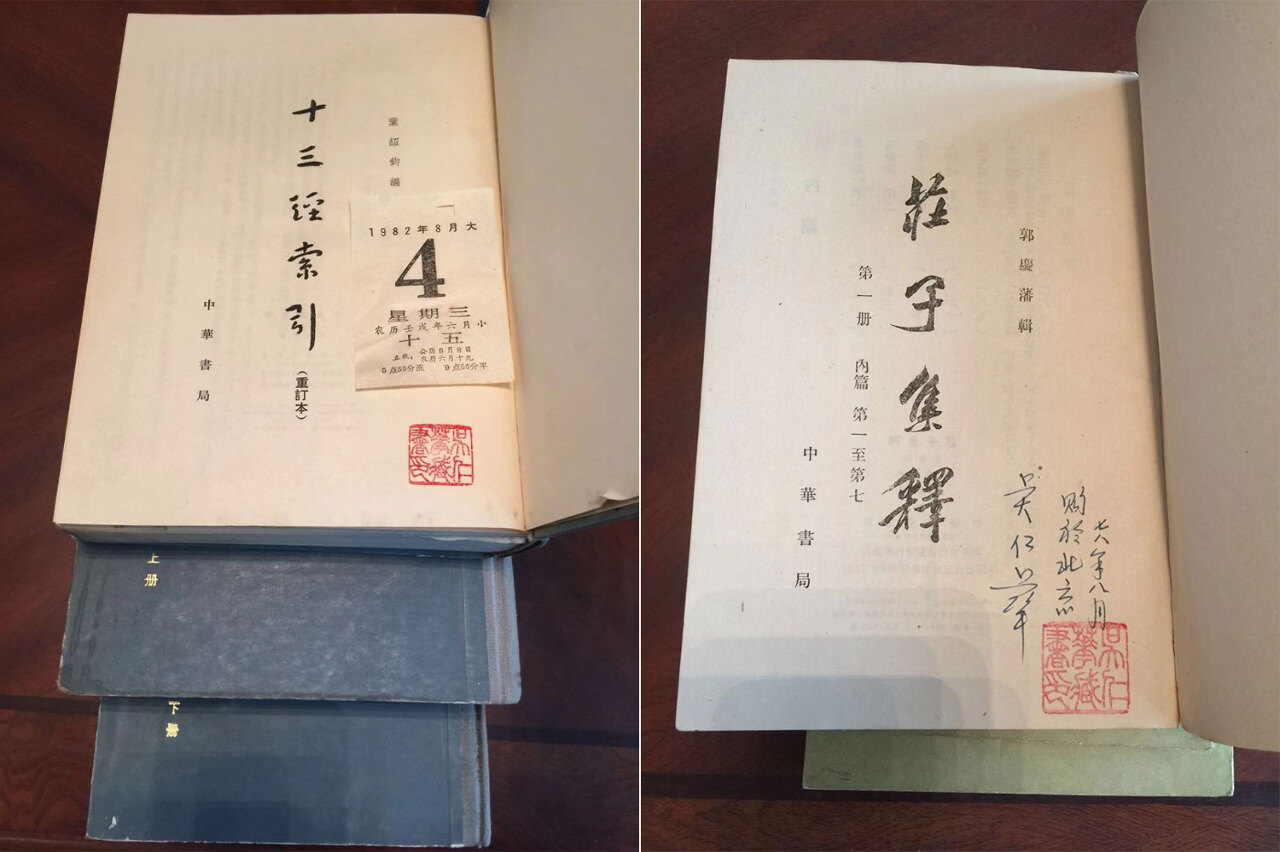 葉紹鈞編
十三經索引
（重訂本）
中華書局
1982年8月大
4
星期三
农历壬戌年六月小
十五
公历8月8日
立秋：农历六月十九
5点50分涨 9点50分平
吴仁華藏書印
上册
下册
郭慶藩輯
莊子集釋
第一册 內篇 第一至第七
中華書局
七八年八月
购於北京
吴仁华
吴仁華藏書印